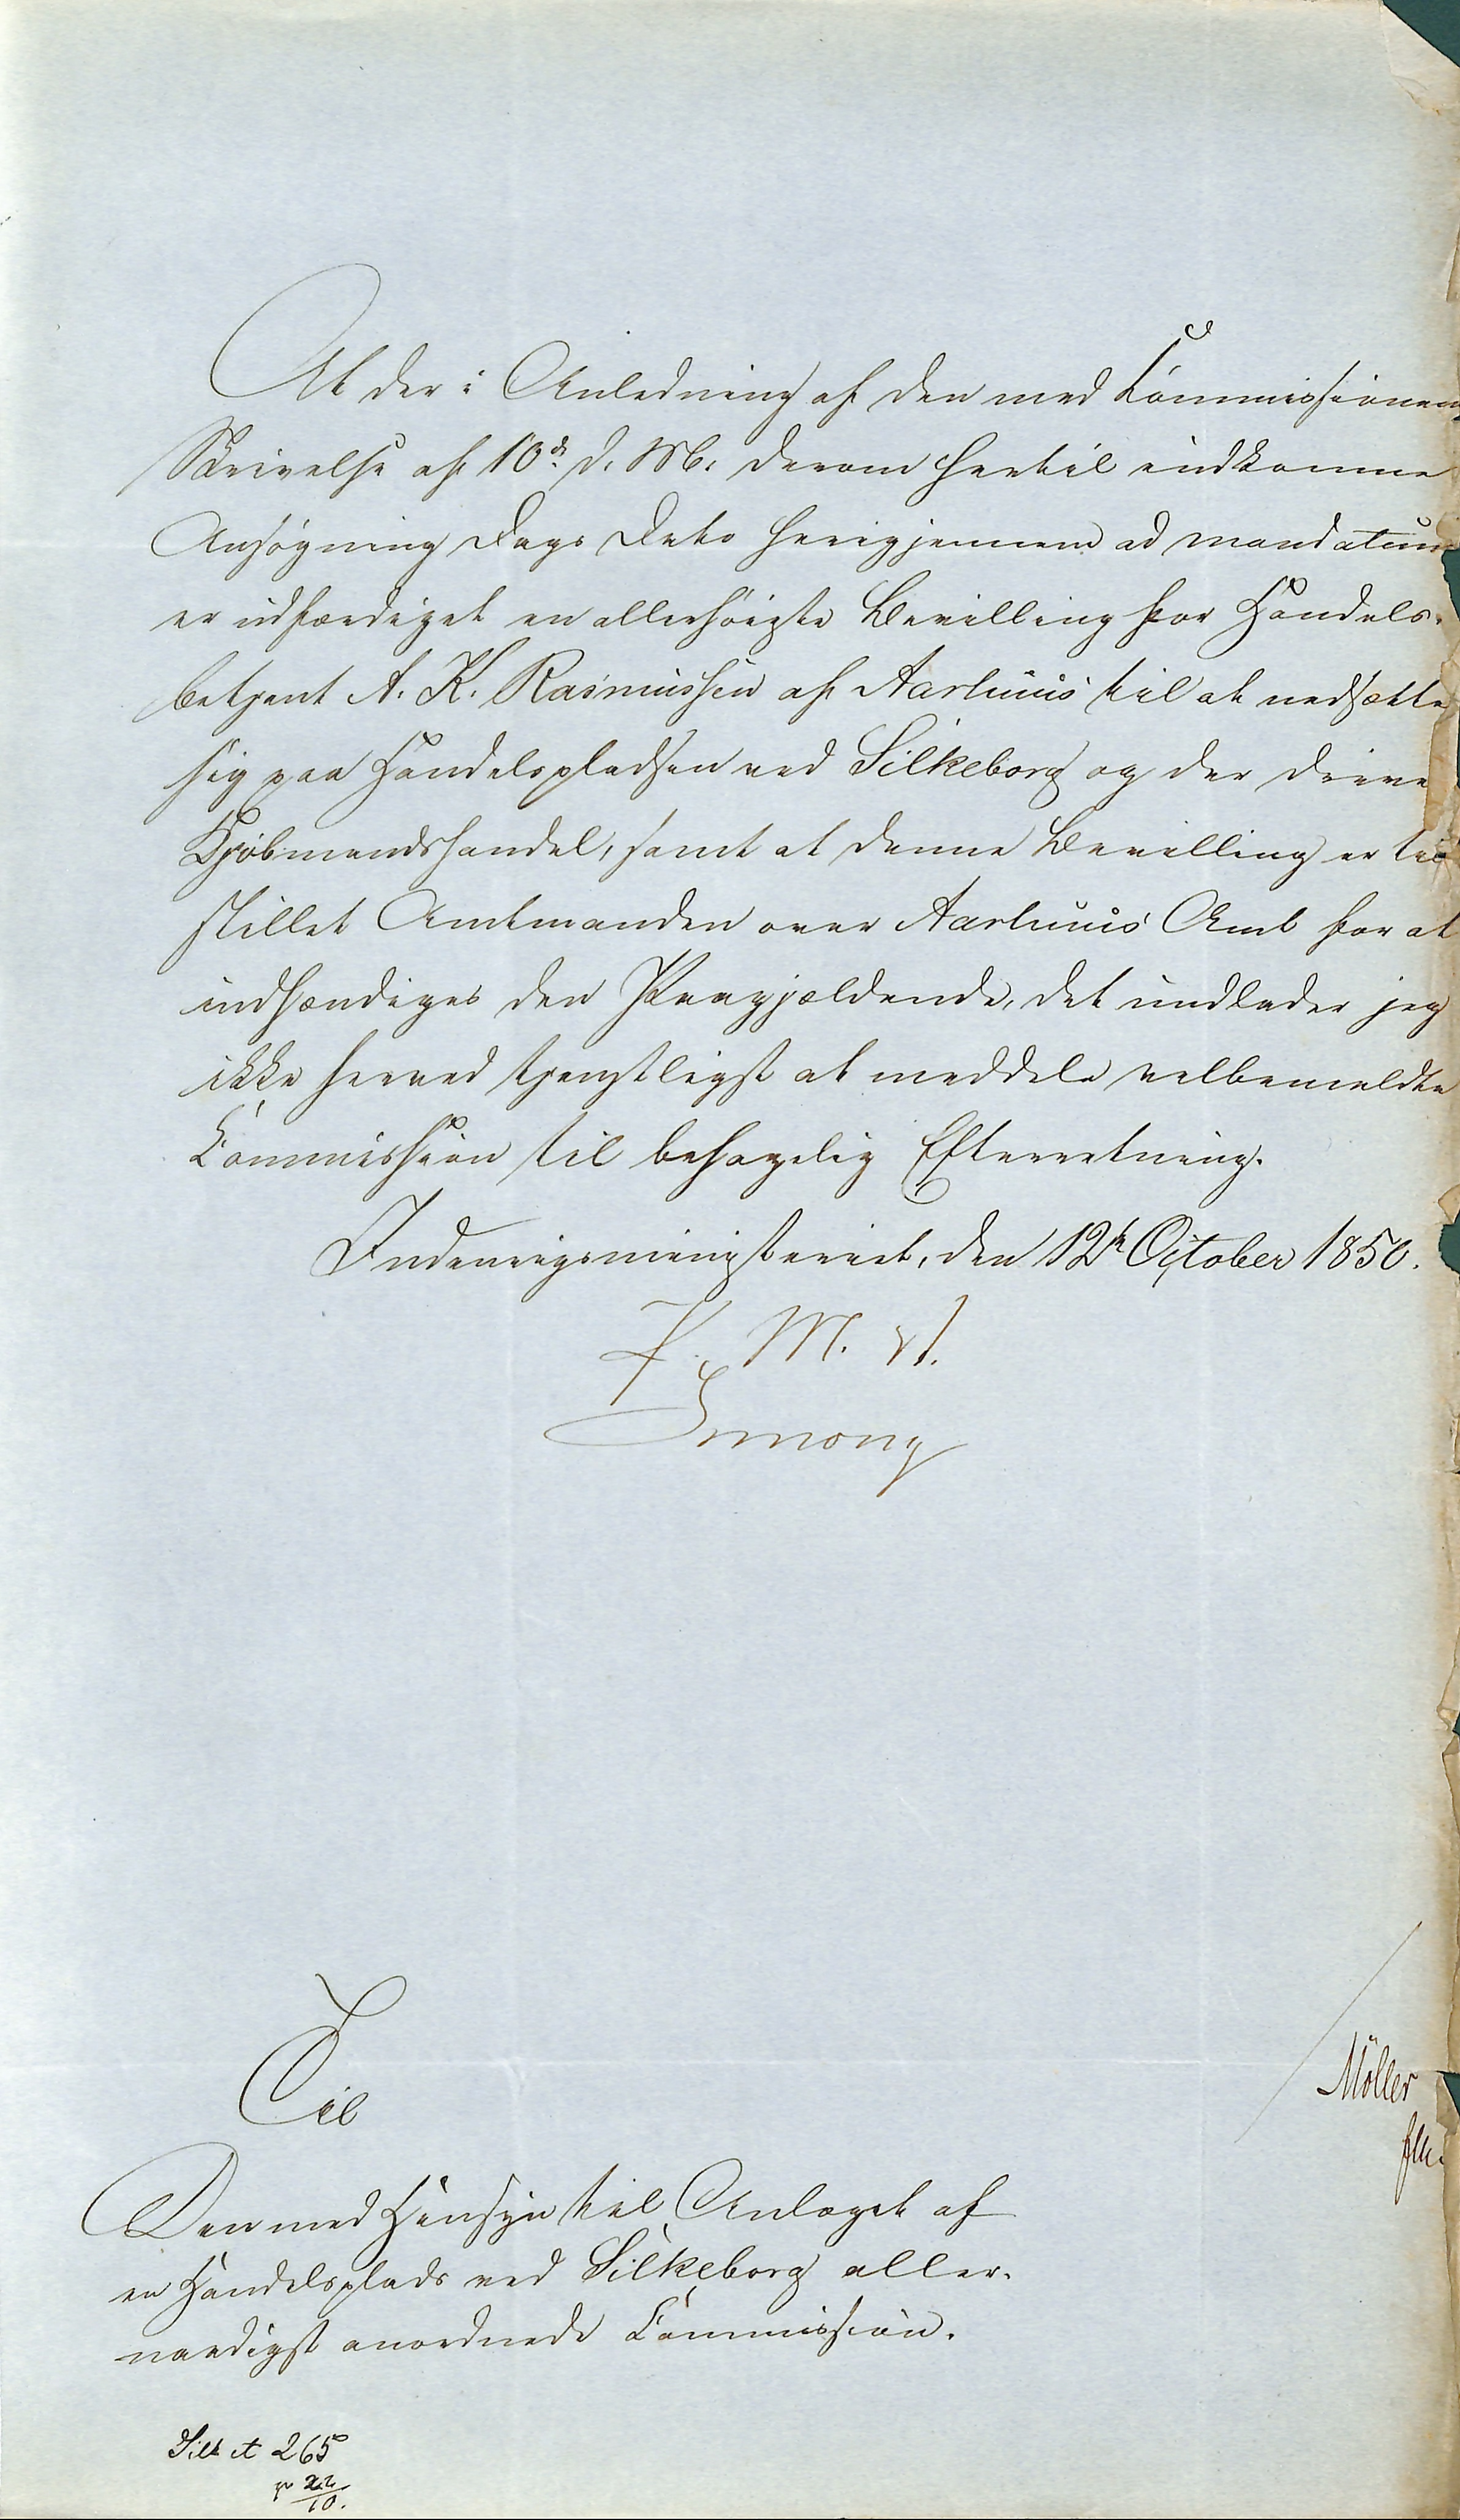 At der i Anledning af den med Commissionens
Skrivelse af 10de d. M. derom hertil indkomne
Ansøgning Dags Dato herigjennem ad mandatum
er udfærdiget en allerhøieste Bevilling for Handels-
betjent A. K. Rasmussen af Aarhuus til at nedsætte
sig paa Handelspladsen ved Silkeborg og der drive
Kjøbmandshandel, samt at denne Bevilling er til
stillet Amtmanden over Aarhuus Amt for at
indhændiges den Paagjældende, det undlader jeg
ikke herved tjenstligst at meddele velbemeldte
Commission til behagelig Efterretning.
Indenrigsministeriet, den 12te October 1850.
F. M. V.
Simony
Til
Den med Hensyn til Anlæget af
en Handelsplads ved Silkeborg aller-
naadigst anordnede Commission.
Möller
Silk A 265
22
10.